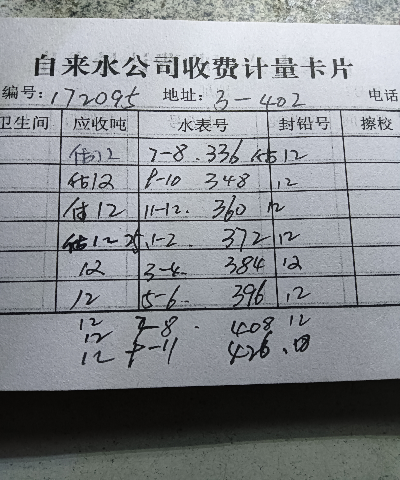 自来水公司收费计量卡片
编号:172095 地址: 3-402 电话
卫生间 应收吨 水表号 封铅号 擦校
估12 7-8. 336 估12
估12 9-10 348 .12
估12 11-12. 360 12
估12 1-2. 372 12
12 3-4 384 12
12 5-6. 396 .12
12 7-8. 408 12
12
12 9-11 426.